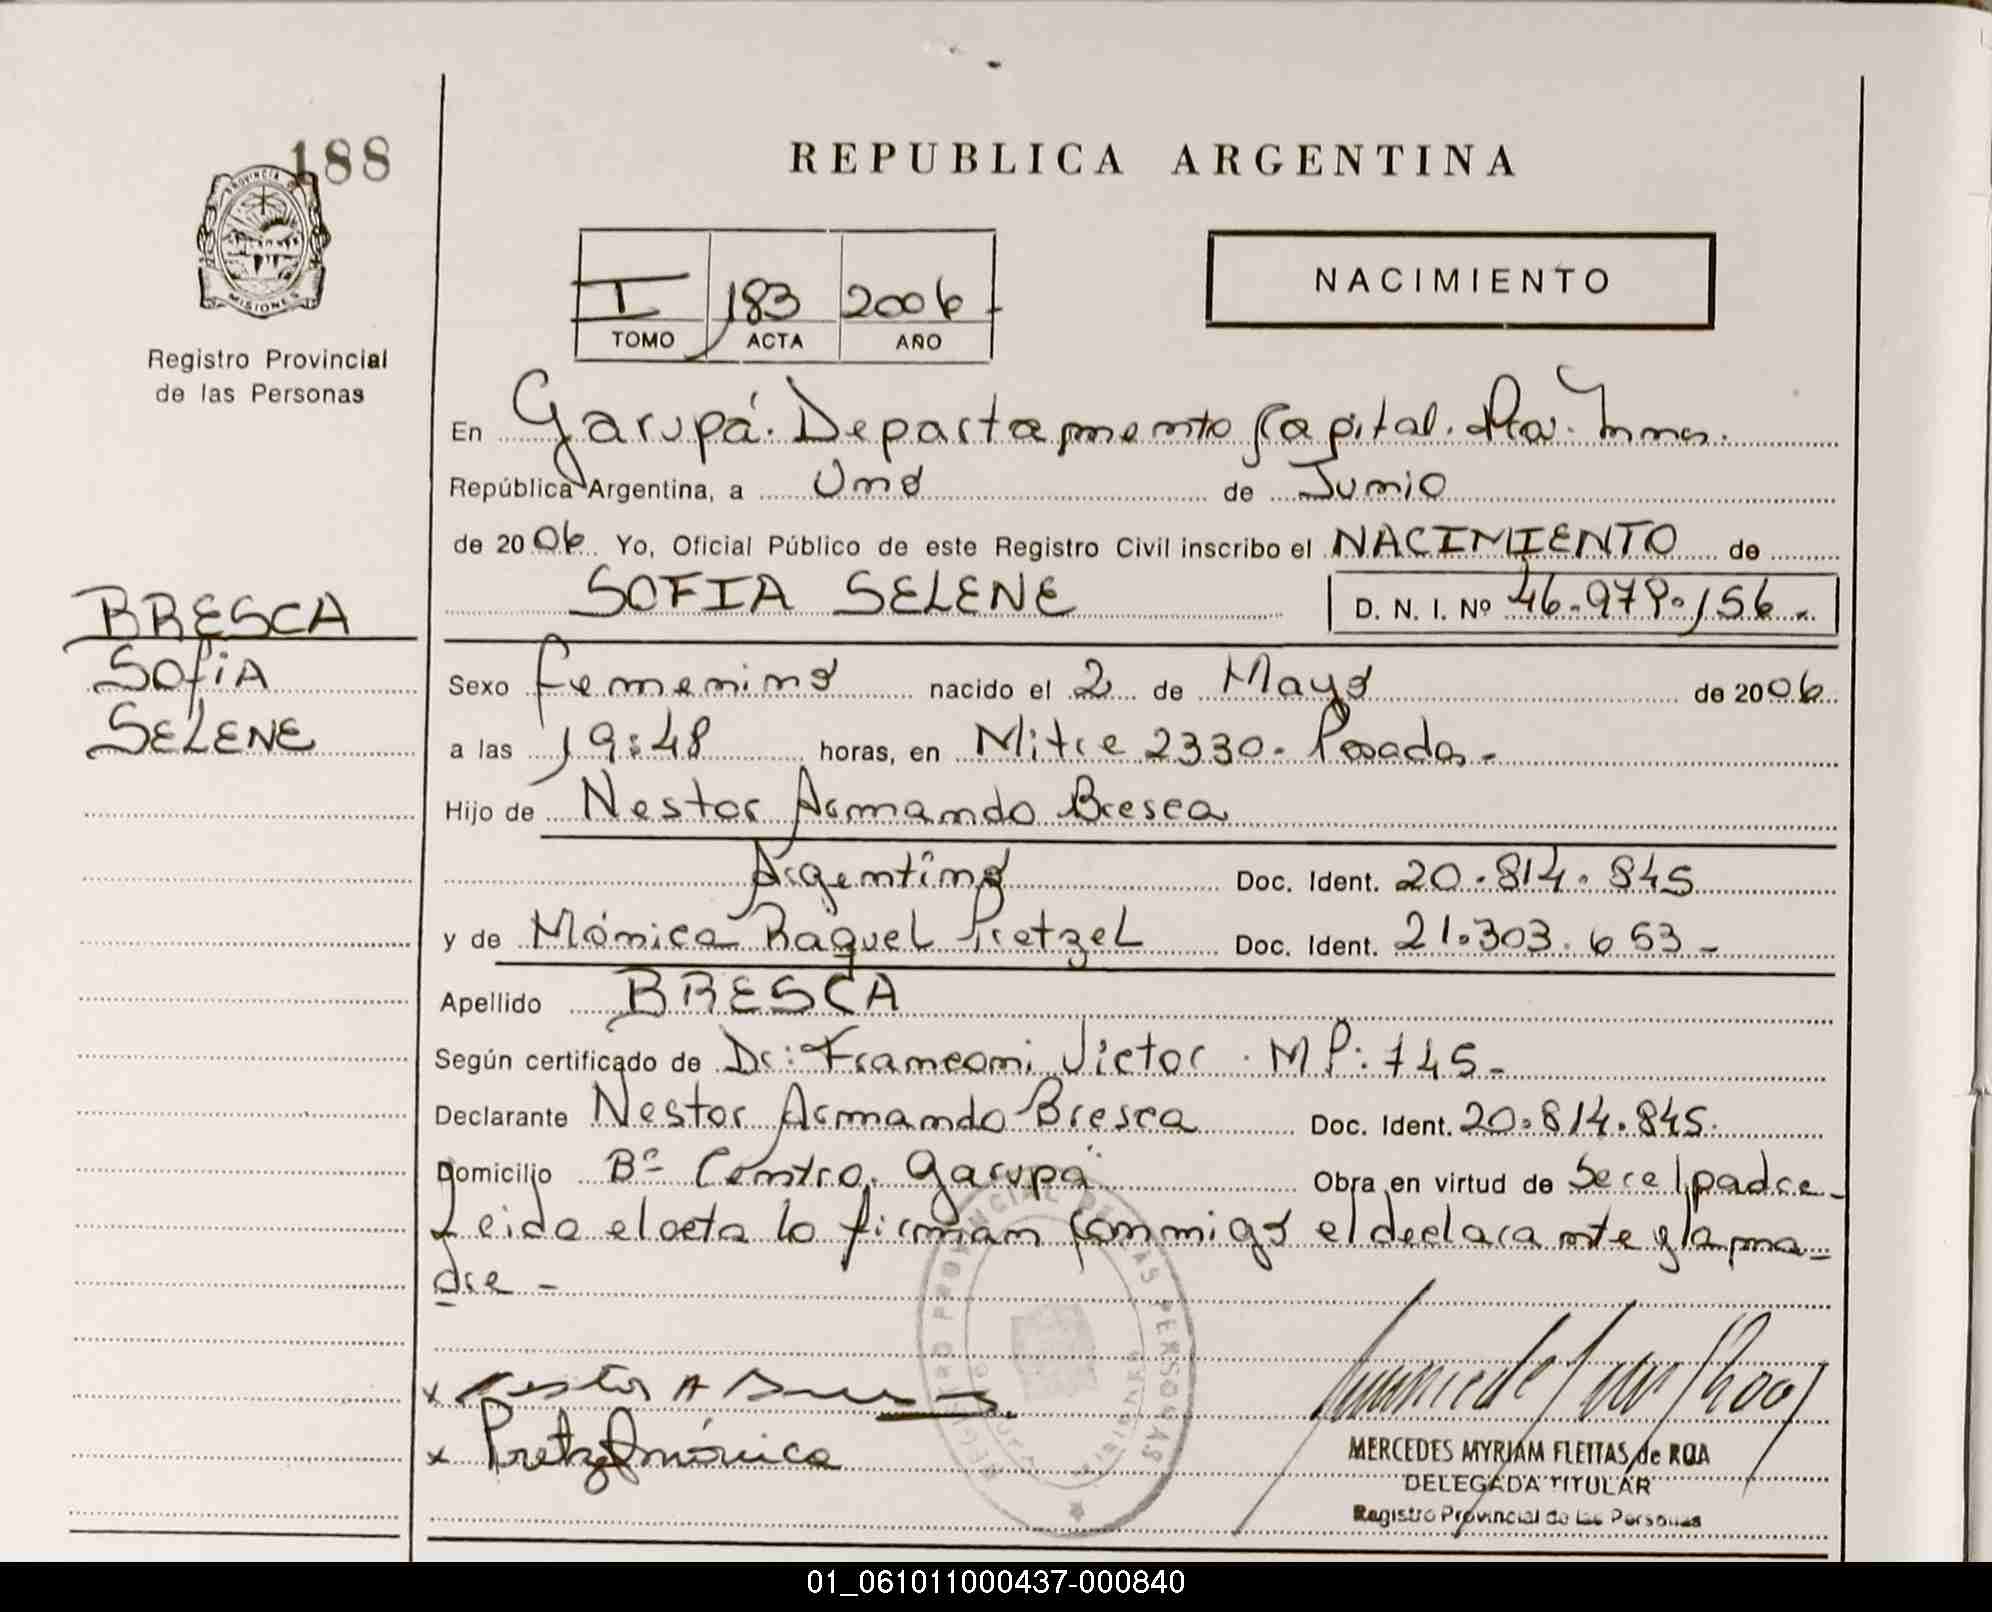 188
PROVINCIA DE
MISIONES
Registro Provincial
de las Personas
REPUBLICA ARGENTINA
NACIMIENTO
I 183 2006
TOMO ACTA AÑO
En Garupá. Departamento Capital. Pcia. Mnes.
República Argentina, a Uno de Junio
de 2006 Yo, Oficial Público de este Registro Civil inscribo el NACIMIENTO de
SOFIA SELENE D. N. I. Nº 46.979.156.-
BRESCA
SofiA
SELENE
Sexo femenino nacido el 2 de Mayo de 2006
a las 19:48 horas, en Mitre 2330. Posadas.-
Hijo de Nestor Armando Bresca
Argentino Doc. Ident. 20.814.845
y de Mónica Raquel Pretzel Doc. Ident. 21.303.653-
Apellido BRESCA
Según certificado de Dr: Franconi Victor. MP: 745-
Declarante Nestor Armando Bresca Doc. Ident. 20.814.845.
Domicilio Bº Centro. Garupá Obra en virtud de Ser el padre-
Leida el acta la firman conmigo el declarante y la ma-
dre -
REGISTRO PROVINCIAL DE LAS PERSONAS
x Nestor A
x Pretzel mónica
MERCEDES MYRIAM FLEITAS de ROA
DELEGADA TITULAR
Registro Provincial de las Personas
01_061011000437-000840